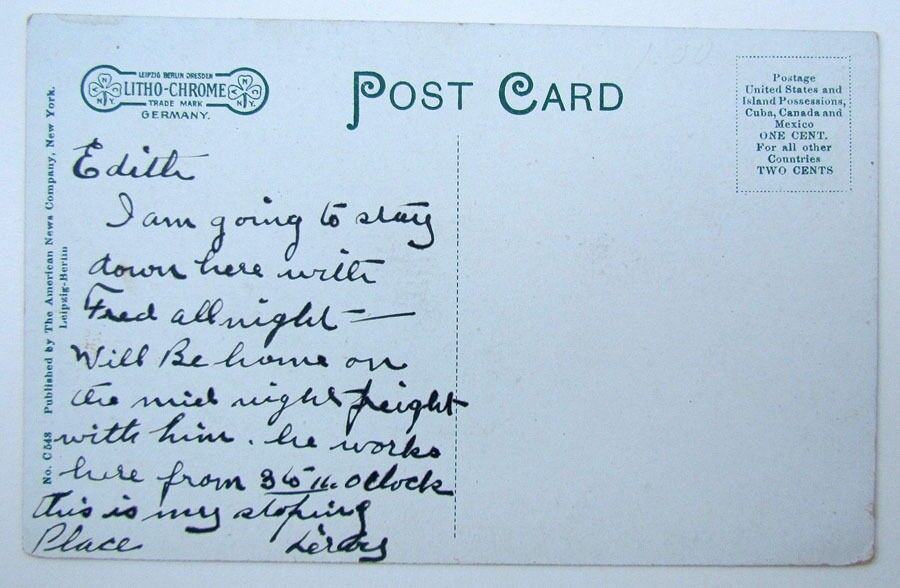 LEIPZIG BERLIN DRESDEN
LITHO-CHROME
TRADE MARK
GERMANY.
N Y
N Y
POST CARD
Postage
United States and
Island Possessions,
Cuba, Canada and
Mexico
ONE CENT.
For all other
Countries
TWO CENTS
No. C 548 Published by The American News Company, New York.
Leipzig-Berlin
Edith
I am going to stay
down here with
Fred all night —
Will Be home on
the mid night freight
with him. he works
here from 3 to 11. oclock
this is my stoping
Place